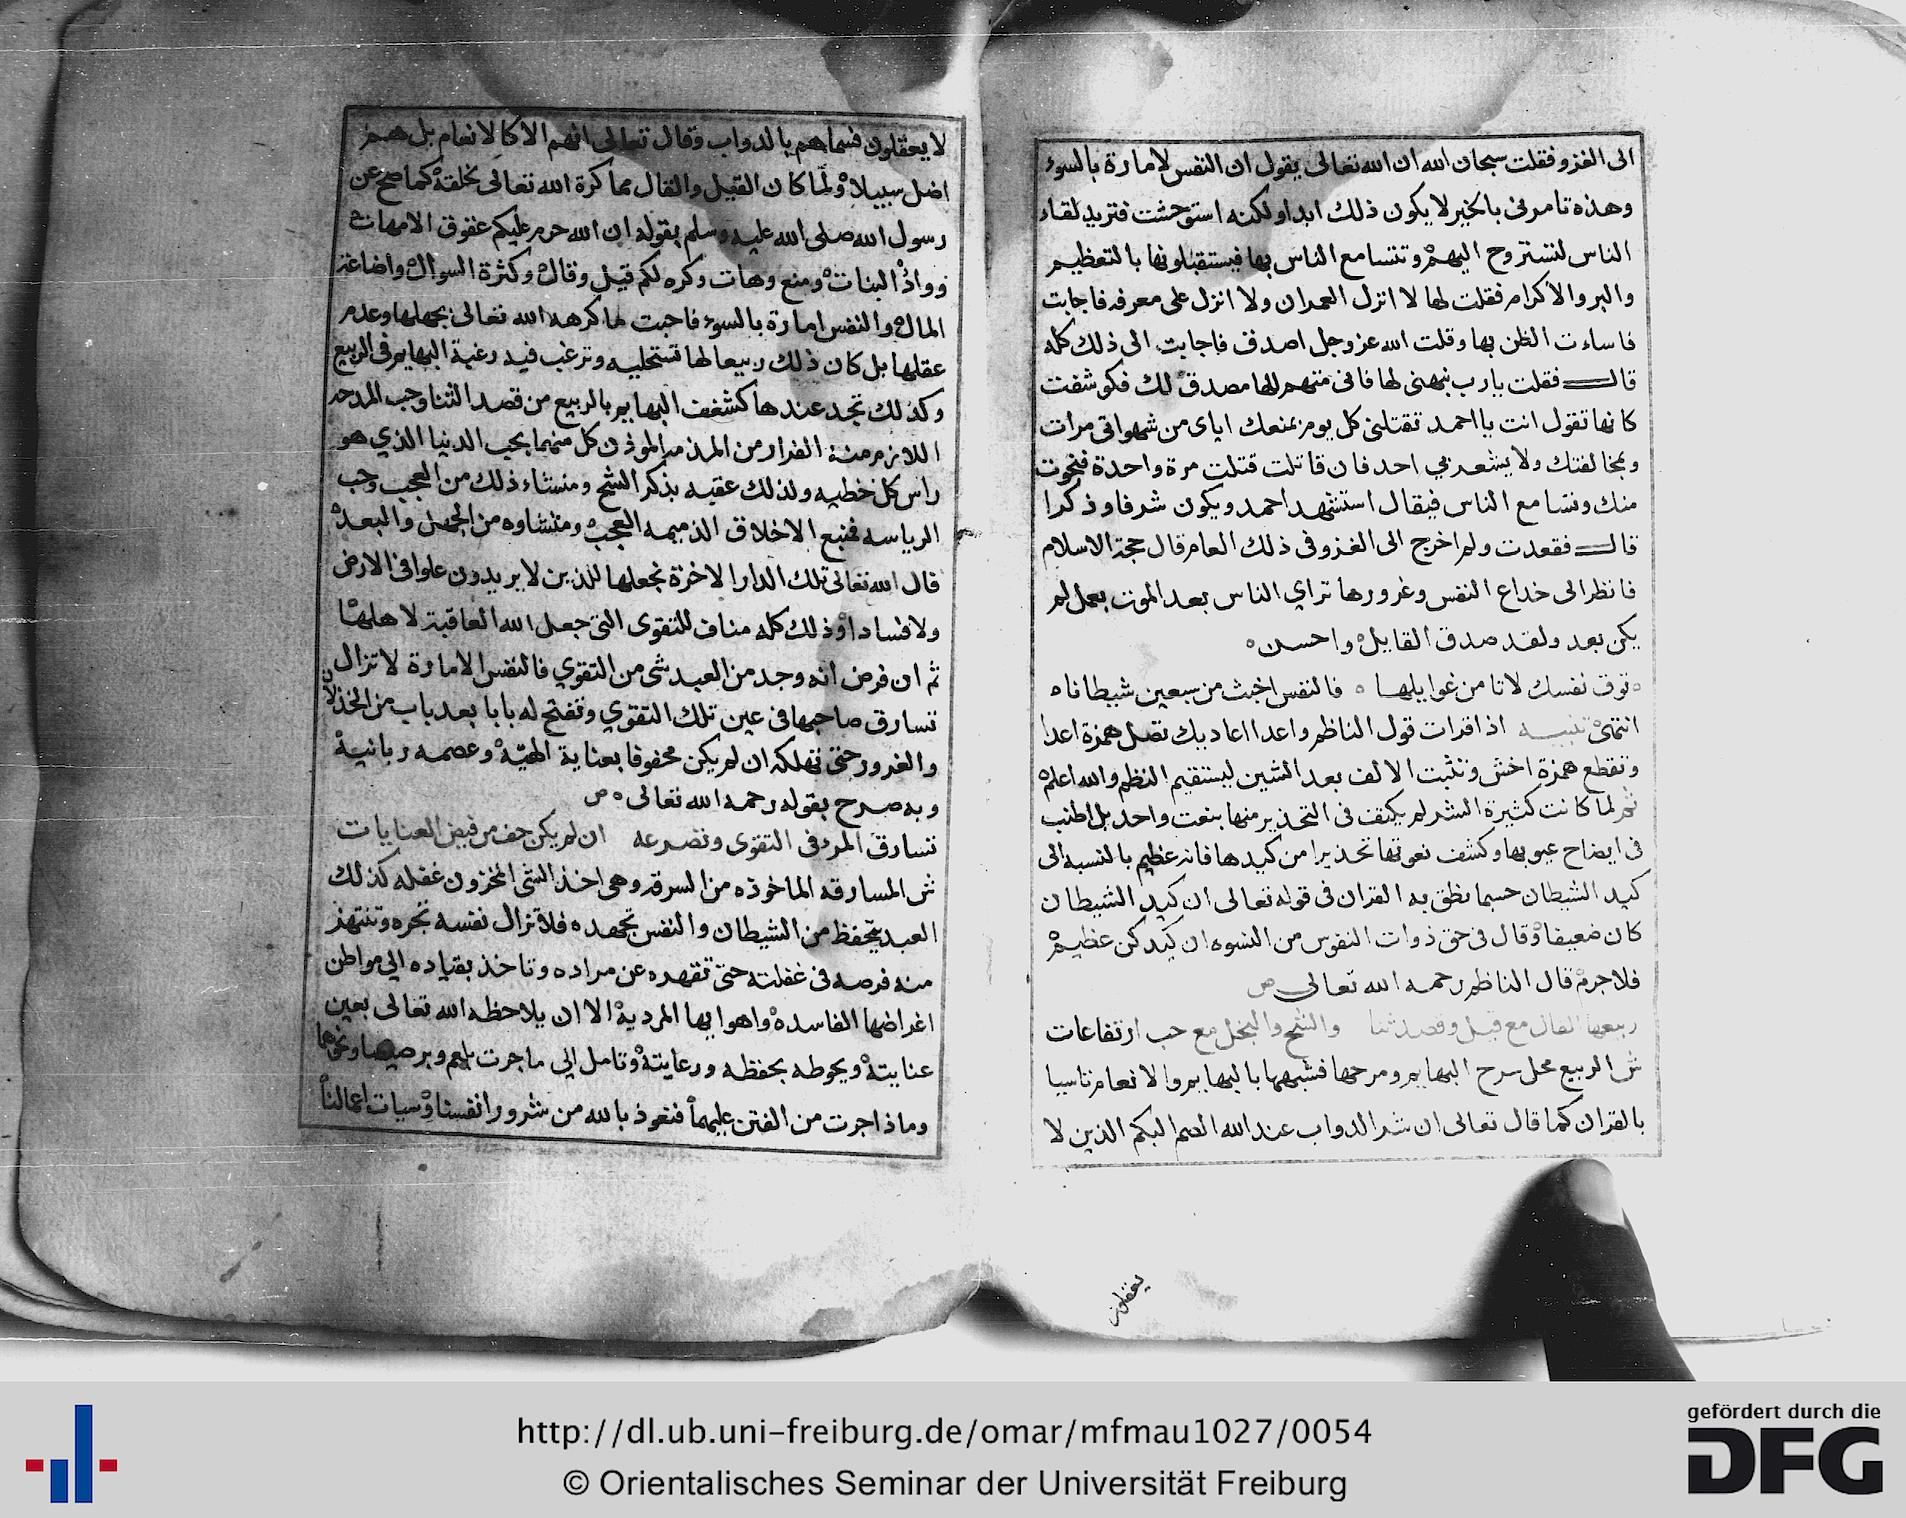 الى الغزو فقلت سبحان الله ان الله تعالى يقول ان النفس لامارة بالسوء
وهذه تامرنى بالخير لا يكون ذلك ابدا ولكنه استوحشت فتريد لقاء
الناس لتستروح اليهم وتتسامع الناس بها فيستقبلونها بالتعظيم
والبر والاكرام فقلت لها لا انزل العمران ولا انزل على معرفه فاجابت
فاساءت الظن بها وقلت الله عز وجل اصدق فاجابت الى ذلك كله
قال فقلت يارب نبهنى لها فانى متهم لها مصدق لك فكوشفت
كانها تقول انت يا احمد تقتلنى كل يوم بمنعك اياى من شهواتى مرات
وبمخالفتك ولا يشعر بي احد فان قاتلت قتلت مرة واحدة فنجوت
منك وتسامع الناس فيقال استشهد احمد ويكون شرفا وذكرا
قال فقعدت ولم اخرج الى الغزو فى ذلك العام قال حجة الاسلام
فانظر الى خداع النفس وغرورها تراي الناس بعد الموت بعمل لم
يكن بعد ولقد صدق القايل واحسن
توق نفسك لا تامن غوايلها فالنفس اخبث من سبعين شيطانا
انتهى تنبيه اذا قرات قول الناظم واعدا اعاديك تصل همزة اعدا
وتقطع همزة اخش وتثبت الالف بعد الشين ليستقيم النظم والله اعلم
ثم لما كانت كثيرة الشر لم يكتف فى التحذير منها بنعت واحد بل اطنب
فى ايضاح عيوبها وكشف نعوتها تحذيرا من كيدها فانه عظيم بالنسبه الى
كيد الشيطان حسبما نطق به القران فى قوله تعالى ان كيد الشيطان
كان ضعيفا وقال فى حق ذوات النفوس من النسوه ان كيدكن عظيم
فلا جرم قال الناظم رحمه الله تعالى ص
ربيعها القال مع قيل وقصد ثنا والشح والبخل مع حب ارتفاعات
ش الربيع محل سرح البهايم ومرحها فشبهها بالبهايم والانعام تاسيا
بالقران كما قال تعالى ان شر الدواب عند الله الصم البكم الذين لا
يعقلون
لا يعقلون فسماهم بالدواب وقال تعالى انهم الا كالانعام بل هم
اضل سبيلا ولما كان القيل والقال مما كره الله تعالى لخلقه كما صح عن
رسول الله صلى الله عليه وسلم بقوله ان الله حرم عليكم عقوق الامهات
وواد البنات ومنع وهات وكره لكم قيل وقال وكثرة السوال واضاعة
المال والنفس امارة بالسوء فاحبت ما كرهه الله تعالى بجهلها وعدم
عقلها بل كان ذلك ربيعا لها تستحليه وترغب فيه رغبة البهايم فى الربيع
وكذلك تجد عندها كشغف البهايم بالربيع من قصد الثنا وحب المدحه
اللازم منه الفرار من المذمه الموذن كل منهما بحب الدنيا الذي هو
راس كل خطيه ولذلك عقبه بذكر الشح ومنشاء ذلك من العجب وحب
الرياسه فمنبع الاخلاق الذميمه العجب ومنشاوه من الجهل والبعد
قال الله تعالى تلك الدار الاخرة نجعلها للذين لا يريدون علوا فى الارض
ولا فسادا وذلك كله مناف للتقوى التى جعل الله العاقبة لاهلها
ثم ان فرض انه وجد من العبد شى من التقوي فالنفس الامارة لا تزال
تسارق صاحبها فى عين تلك التقوي وتفتح له بابا بعد باب من الخذلان
والغرور حتى تهلكه ان لم يكن محفوفا بعناية الهية وعصمه ربانية
وبه صرح بقوله رحمه الله تعالى ص
تسارق المرء فى التقوى وتصرعه ان لم يكن حف من فيض العنايات
ش المسارقه الماخوذه من السرقه وهى اخذ الشى المخزون غفله كذلك
العبد يتحفظ من الشيطان والنفس بجهده فلا تزال نفسه تجره وتنتهز
منه فرصه فى غفلته حتى تقهره عن مراده وتاخذ بقياده الي مواطن
اغراضها الفاسده واهوايها المرديه الا ان يلاحظه الله تعالى بعين
عنايته ويحوطه بحفظه ورعايته وتامل الي ما جرت بلعم وبرصيصا ونحوهما
وماذا جرت من الفتن عليهما فنعوذ بالله من شرور انفسنا وسيات اعمالنا
http://dl.ub.uni-freiburg.de/omar/mfmau1027/0054
© Orientalisches Seminar der Universität Freiburg
gefördert durch die
DFG